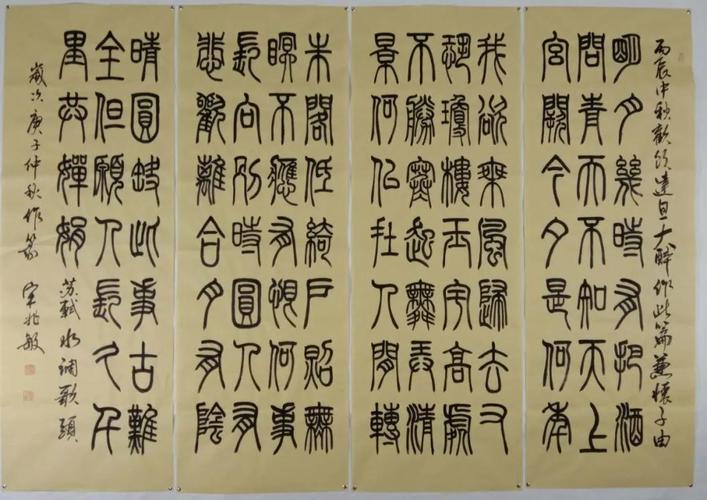 丙辰中秋歡飲達旦大醉作此篇兼懷子由
明月幾時有把酒
問青天不知天上
宮闕今夕是何年
我欲乘風歸去又
恐瓊樓玉宇高處
不勝寒起舞弄清
景何似在人間轉
朱閣低綺戶照無
瞑不應有恨何事
長向別時圓人有
悲歡離合月有陰
晴圓缺此事古難
全但願人長久千
里共嬋娟
蘇軾水調歌頭
歲次庚子仲秋作篆 宋兆敏